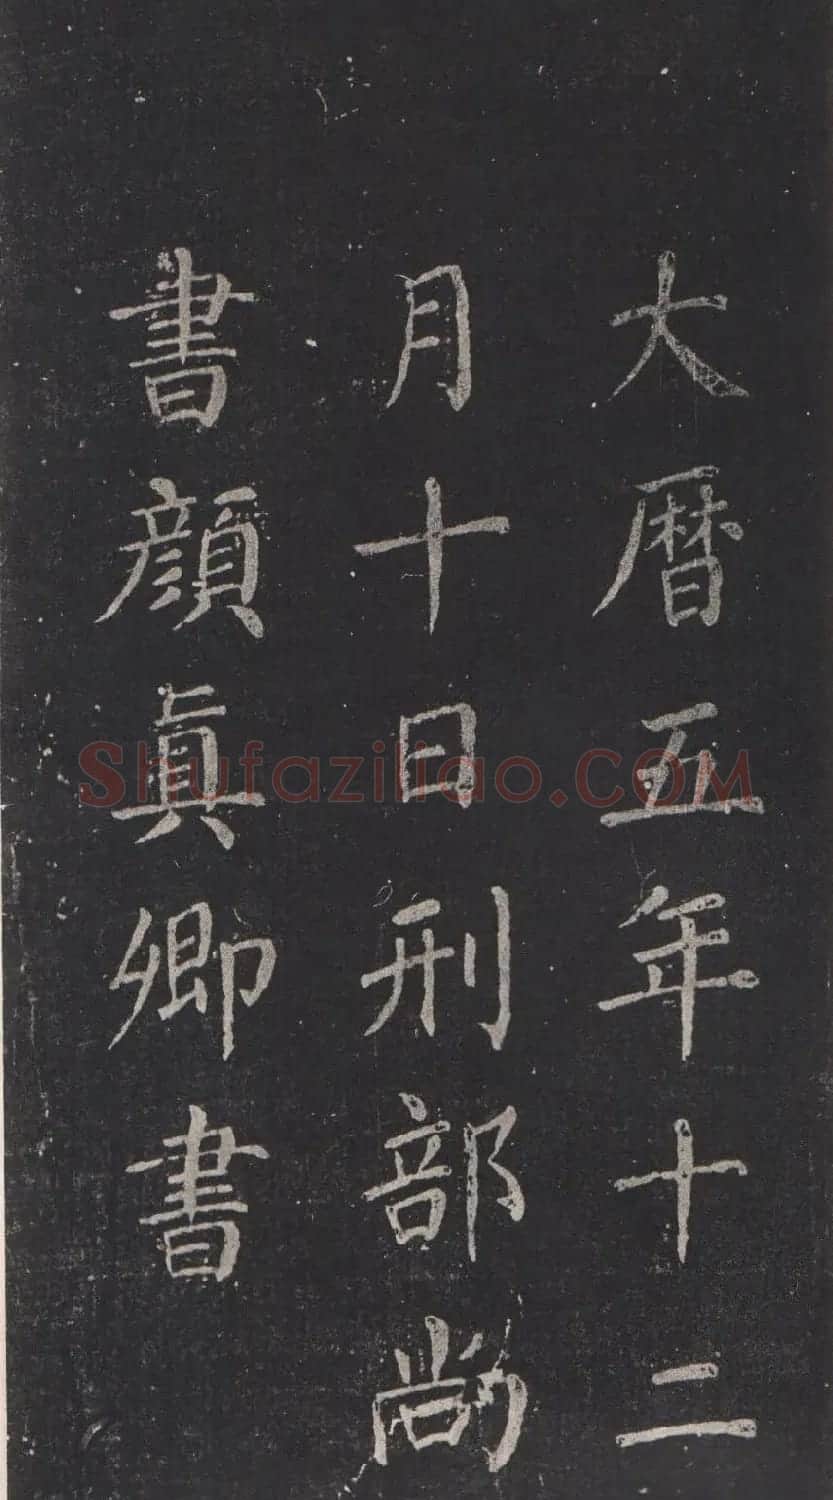 大曆五年十二
月十日刑部尚
書顏真卿書
Shufaziliao.COM